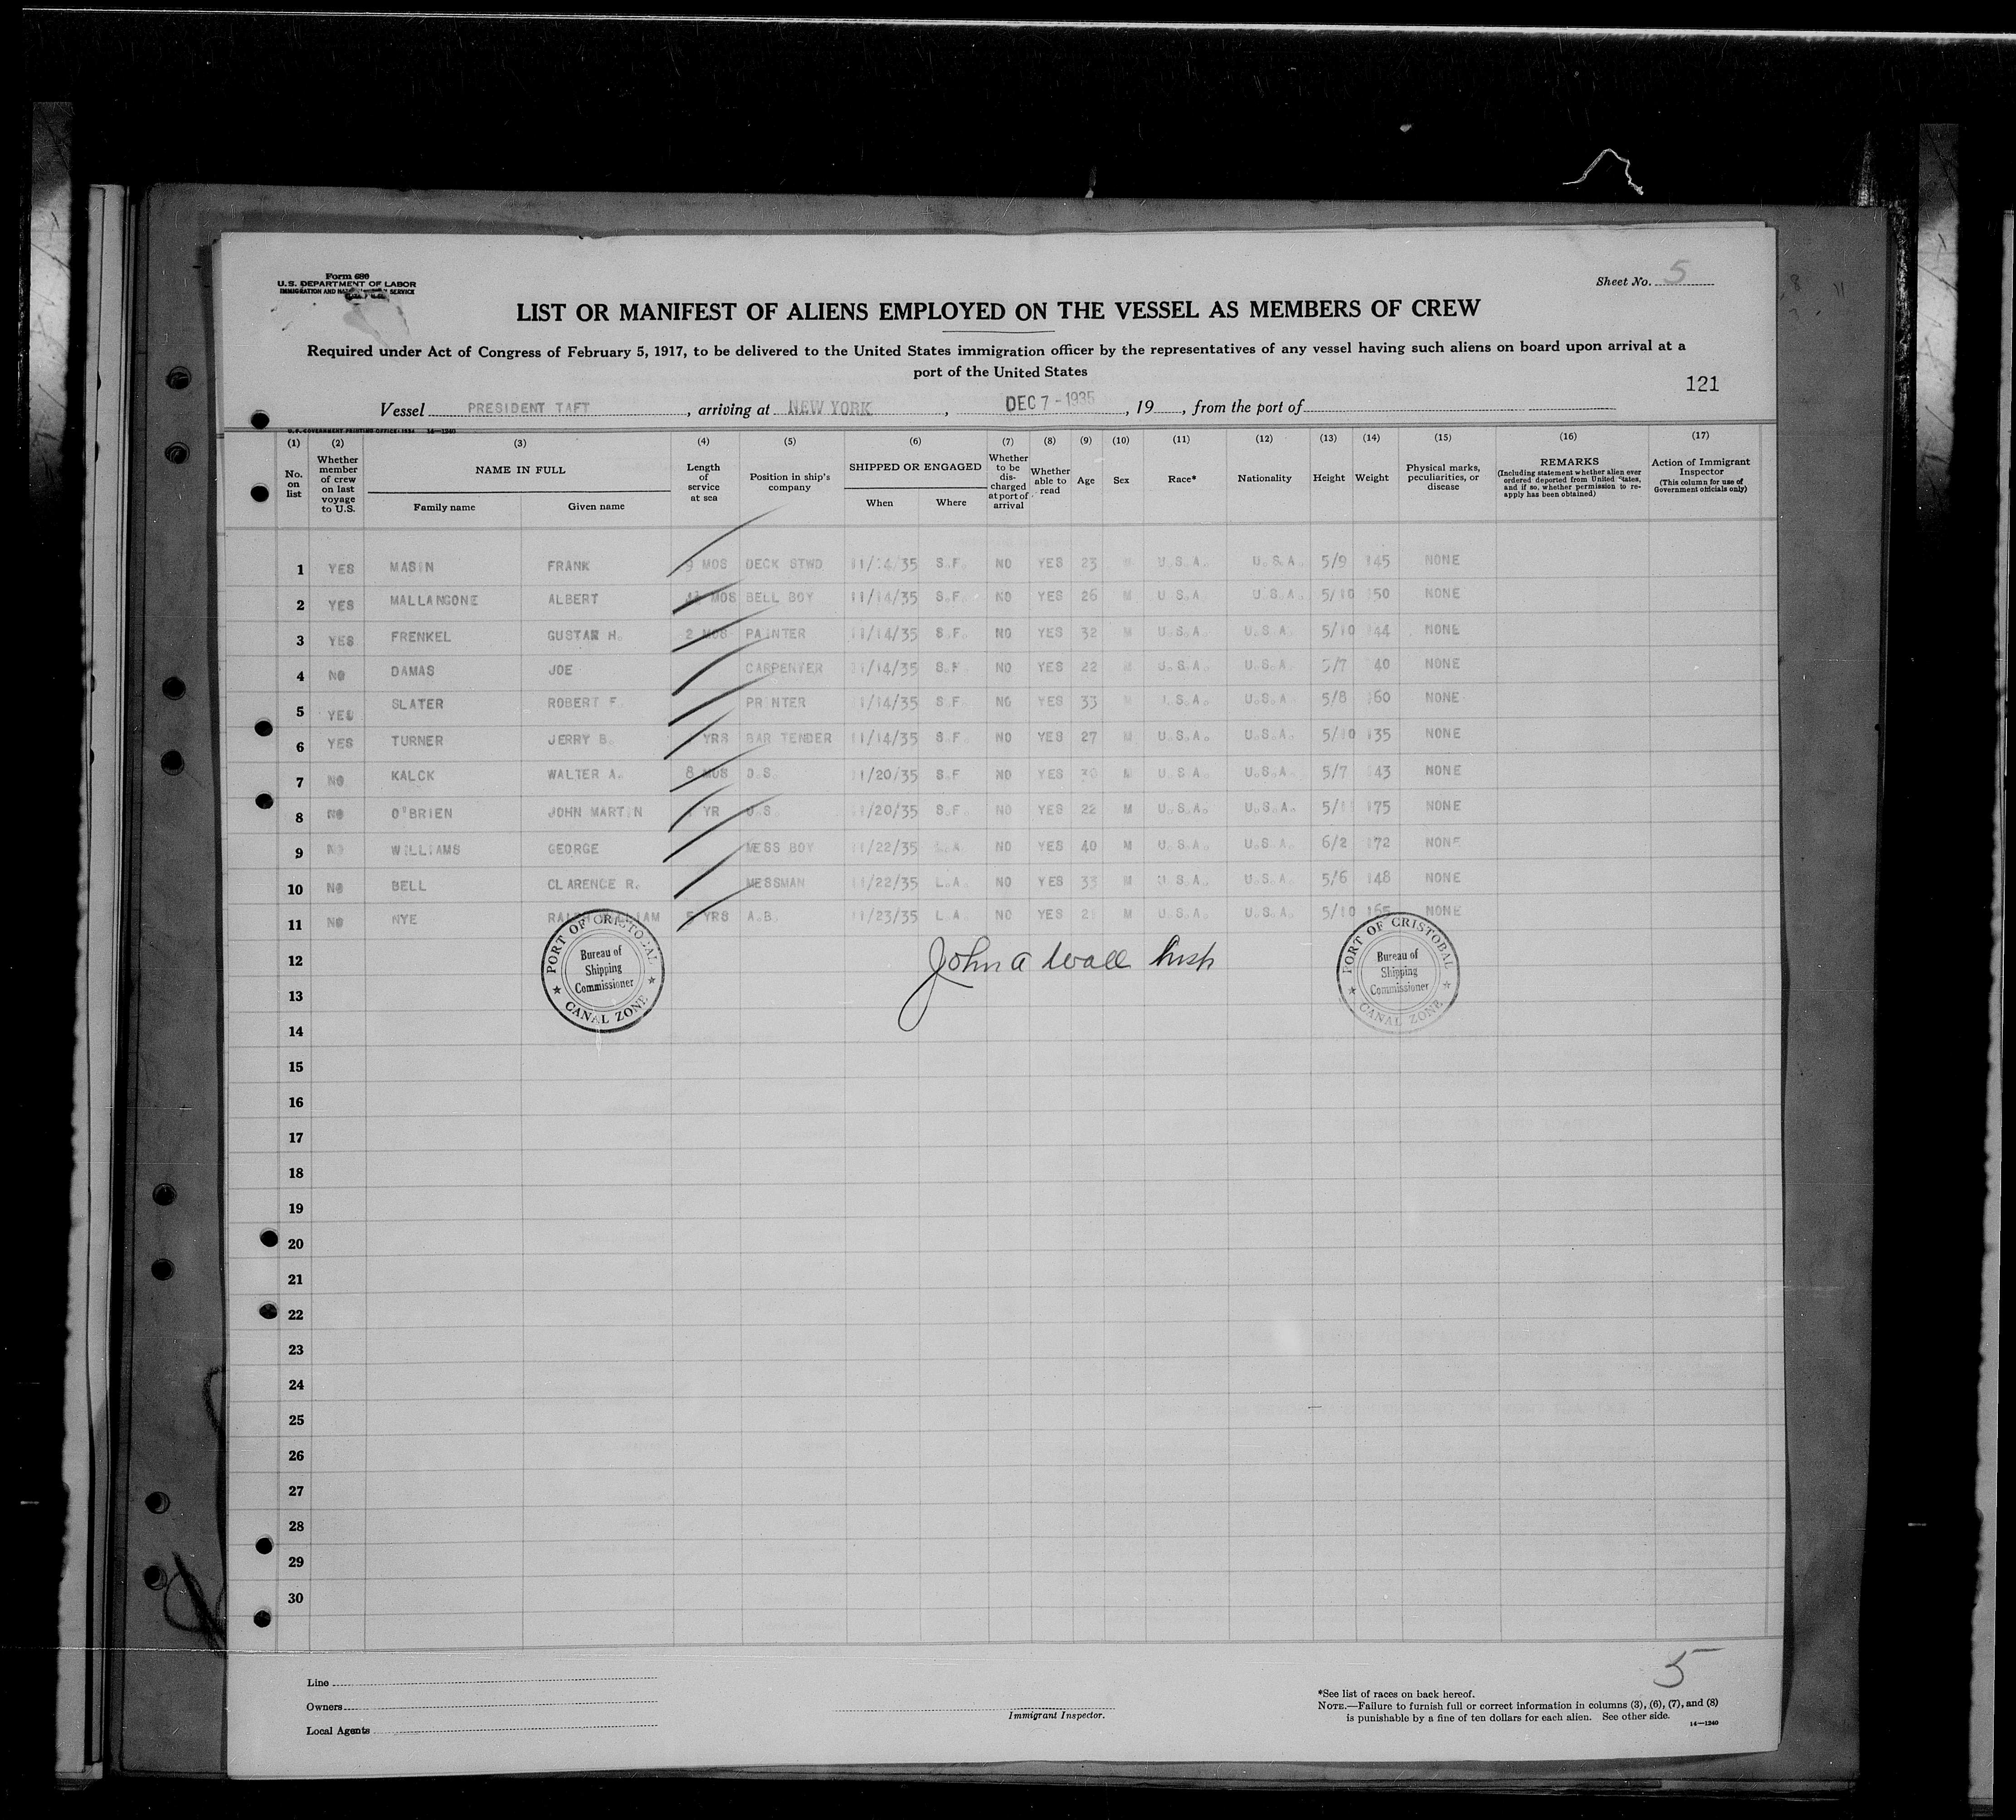 Form 680
U.S. DEPARTMENT OF LABOR
IMMIGRATION AND NATURALIZATION SERVICE
Sheet No. 5
LIST OR MANIFEST OF ALIENS EMPLOYED ON THE VESSEL AS MEMBERS OF CREW
Required under Act of Congress of February 5, 1917, to be delivered to the United States immigration officer by the representatives of any vessel having such aliens on board upon arrival at a
port of the United States
121
Vessel PRESIDENT TAFT, arriving at NEW YORK, DEC 7 - 1935, 19, from the port of
U.S. GOVERNMENT PRINTING OFFICE: 1934 14—1240
(1) (2) (3) (4) (5) (6) (7) (8) (9) (10) (11) (12) (13) (14) (15) (16) (17)
No. on list
Whether member of crew on last voyage to U.S.
NAME IN FULL
Family name
Given name
Length of service at sea
Position in ship's company
SHIPPED OR ENGAGED
When
Where
Whether to be discharged at port of arrival
Whether able to read
Age
Sex
Race*
Nationality
Height
Weight
Physical marks, peculiarities, or disease
REMARKS
(Including statement whether alien ever ordered deported from United States, and if so, whether permission to reapply has been obtained)
Action of Immigrant Inspector
(This column for use of Government officials only)
1 YES MASIN FRANK 9 MOS DECK STWD 11/14/35 S.F. NO YES 23 M U.S.A. U.S.A. 5/9 145 NONE
2 YES MALLANGONE ALBERT MOS BELL BOY 11/14/35 S.F. NO YES 26 M U.S.A. U.S.A. 5/10 150 NONE
3 YES FRENKEL GUSTAN H. 2 MOS PAINTER 11/14/35 S.F. NO YES 32 M U.S.A. U.S.A. 5/10 144 NONE
4 NO DAMAS JOE CARPENTER 11/14/35 S.F. NO YES 22 M U.S.A. U.S.A. 5/7 140 NONE
5 YES SLATER ROBERT F. PRINTER 11/14/35 S.F. NO YES 33 M U.S.A. U.S.A. 5/8 160 NONE
6 YES TURNER JERRY B. YRS BAR TENDER 11/14/35 S.F. NO YES 27 M U.S.A. U.S.A. 5/10 135 NONE
7 NO KALCK WALTER A. 8 MOS O.S. 11/20/35 S.F. NO YES 30 M U.S.A. U.S.A. 5/7 143 NONE
8 NO O'BRIEN JOHN MARTIN YR O.S. 11/20/35 S.F. NO YES 22 M U.S.A. U.S.A. 5/11 175 NONE
9 NO WILLIAMS GEORGE MESS BOY 11/22/35 L.A. NO YES 40 M U.S.A. U.S.A. 6/2 172 NONE
10 NO BELL CLARENCE R. MESSMAN 11/22/35 L.A. NO YES 33 M U.S.A. U.S.A. 5/6 148 NONE
11 NO NYE RALPH WILLIAM 5 YRS A.B. 11/23/35 L.A. NO YES 21 M U.S.A. U.S.A. 5/10 165 NONE
PORT OF CRISTOBAL
Bureau of
Shipping
Commissioner
CANAL ZONE
John A Wall Insp
PORT OF CRISTOBAL
Bureau of
Shipping
Commissioner
CANAL ZONE
12
13
14
15
16
17
18
19
20
21
22
23
24
25
26
27
28
29
30
5
Line
Owners
Local Agents
Immigrant Inspector.
*See list of races on back hereof.
NOTE.—Failure to furnish full or correct information in columns (3), (6), (7), and (8)
is punishable by a fine of ten dollars for each alien. See other side.
14—1240